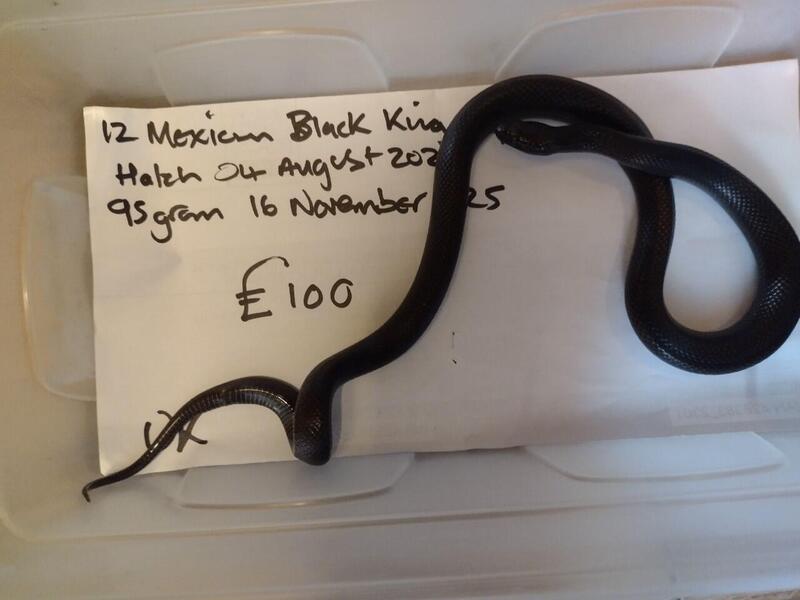 12 Mexican Black King
Hatch 04 August 202
95 gram 16 November 25
£100
UK